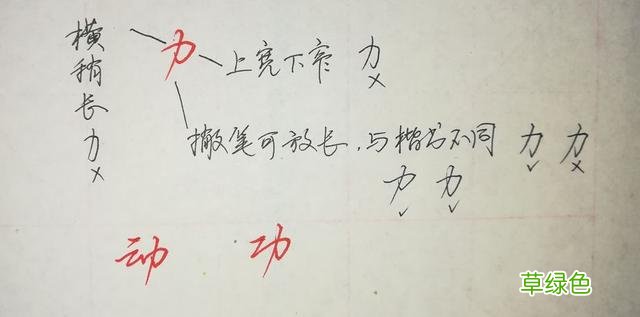 横稍长 力 ×
力
上宽下窄 力 ×
撇笔可放长，与楷书不同 力 ✓ 力 ×
力 ✓ 力 ✓
动 功
草绿色